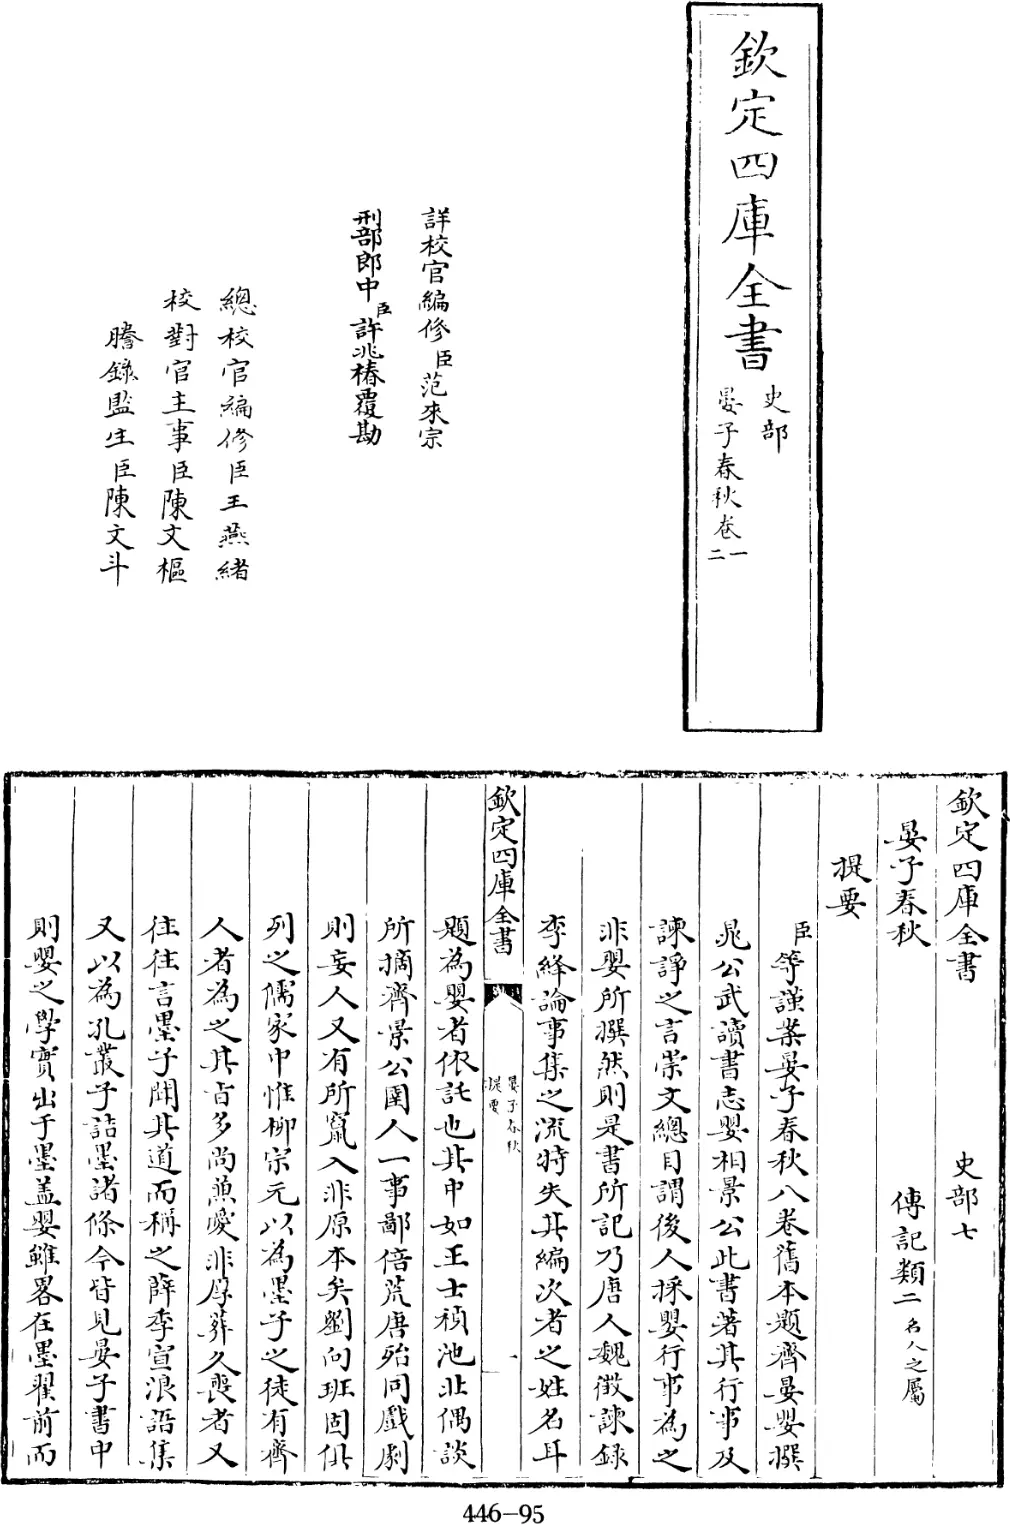 欽定四庫全書
史部
晏子春秋卷一
二
詳校官編修臣范來宗
刑部郎中臣許兆椿覆勘
總校官編修臣王燕緒
校對官主事臣陳文樞
謄錄監生臣陳文斗
欽定四庫全書 史部七
晏子春秋 傳記類二名人之屬
提要
臣等謹案晏子春秋八卷舊本題齊晏嬰撰
晁公武讀書志嬰相景公此書著其行事及
諫諍之言崇文總目謂後人採嬰行事為之
非嬰所撰然則是書所記乃唐人魏徵諫錄
李絳論事集之流特失其編次者之姓名耳
欽定四庫全書
晏子春秋
提要
一
題為嬰者依託也其中如王士禎池北偶談
所摘齊景公圉人一事鄙倍荒唐殆同戲劇
則妄人又有所竄入非原本矣劉向班固俱
列之儒家中惟柳宗元以為墨子之徒有齊
人者為之其旨多尚兼愛非厚葬久喪者又
往往言墨子聞其道而稱之薛季宣浪語集
又以為孔叢子詰墨諸條今皆見晏子書中
則嬰之學實出于墨蓋嬰雖畧在墨翟前而
446-95